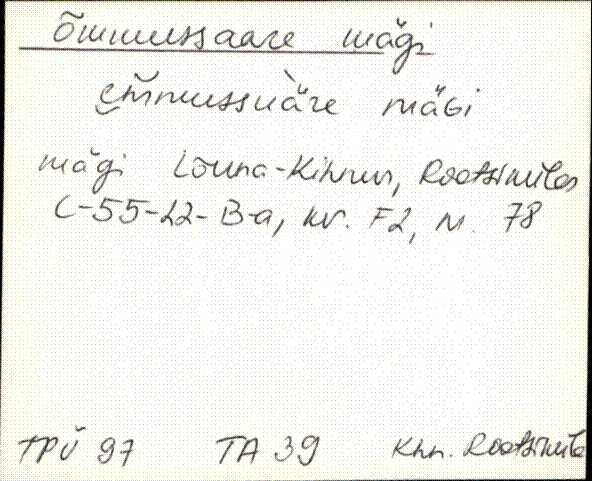 õmmussaare mägi
em̆mussuàre mäGi
mägi Lõuna-Kihnus, Rootsiküla
C-55-22-B-a, kv. F2, n. 78
TPÜ 97 TA 39 Khn. Rootsiküla